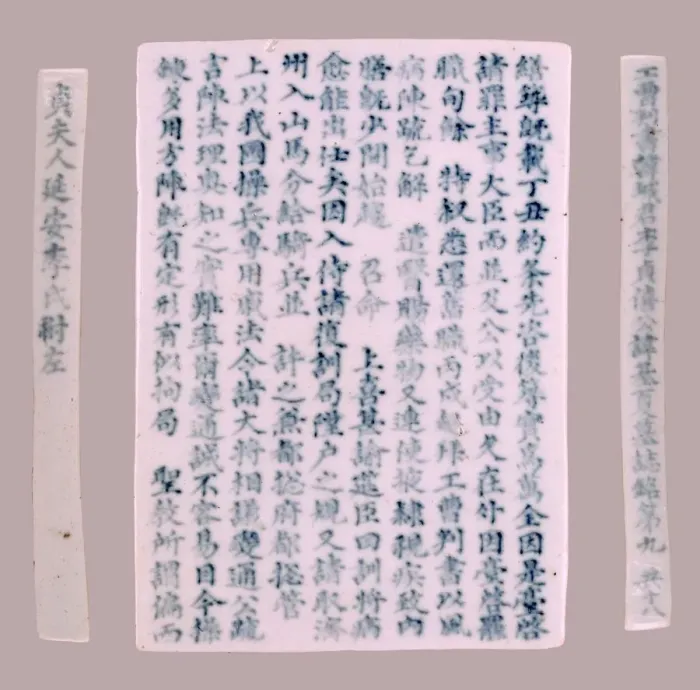 工曹判書韓城君李貞僖公諱基夏墓誌銘第九 共十八
繕鋒旣載丁丑約条先咨後築實萬萬全因是臺啓
請罪主事大臣而並及公以受由久在外因臺啓罷
職旬餘 特叙悉還舊職丙戌超拜工曹判書以風
病陳疏乞解 遣醫賜藥物又連陳掖隷視疾致內
膳旣少間始趍 召命 上喜甚諭筵臣曰訓將病
愈能出仕矣因入侍請復訓局陞户之規又請取濟
州入山馬分給騎兵並 許之兼都摠府都摠管
上以我國操兵專用戚法令諸大將相議變通公疏
言陣法理奥知之實難率爾變通誠不容易目今操
鍊多用方陣旣有定形有似拘局 聖敎所謂偏而
貞夫人延安李氏祔左